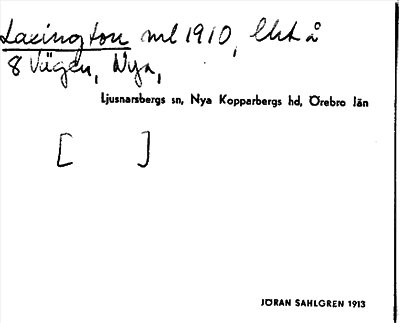 Laxington ml 1910,
8 Vägen, Nya,
Ljusnarsbergs sn, Nya Kopparbergs hd, Örebro län
[ ]
JÖRAN SAHLGREN 1913